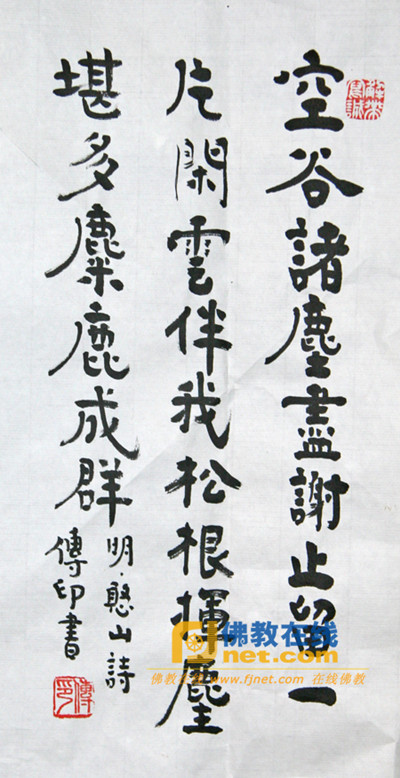 空谷諸塵盡謝止留一
片閑雲伴我松根揮麈
堪多麋鹿成群
明·憨山詩
傳印書
傳印
佛教在线
net.com
佛教在线 www.fjnet.com 在线佛教